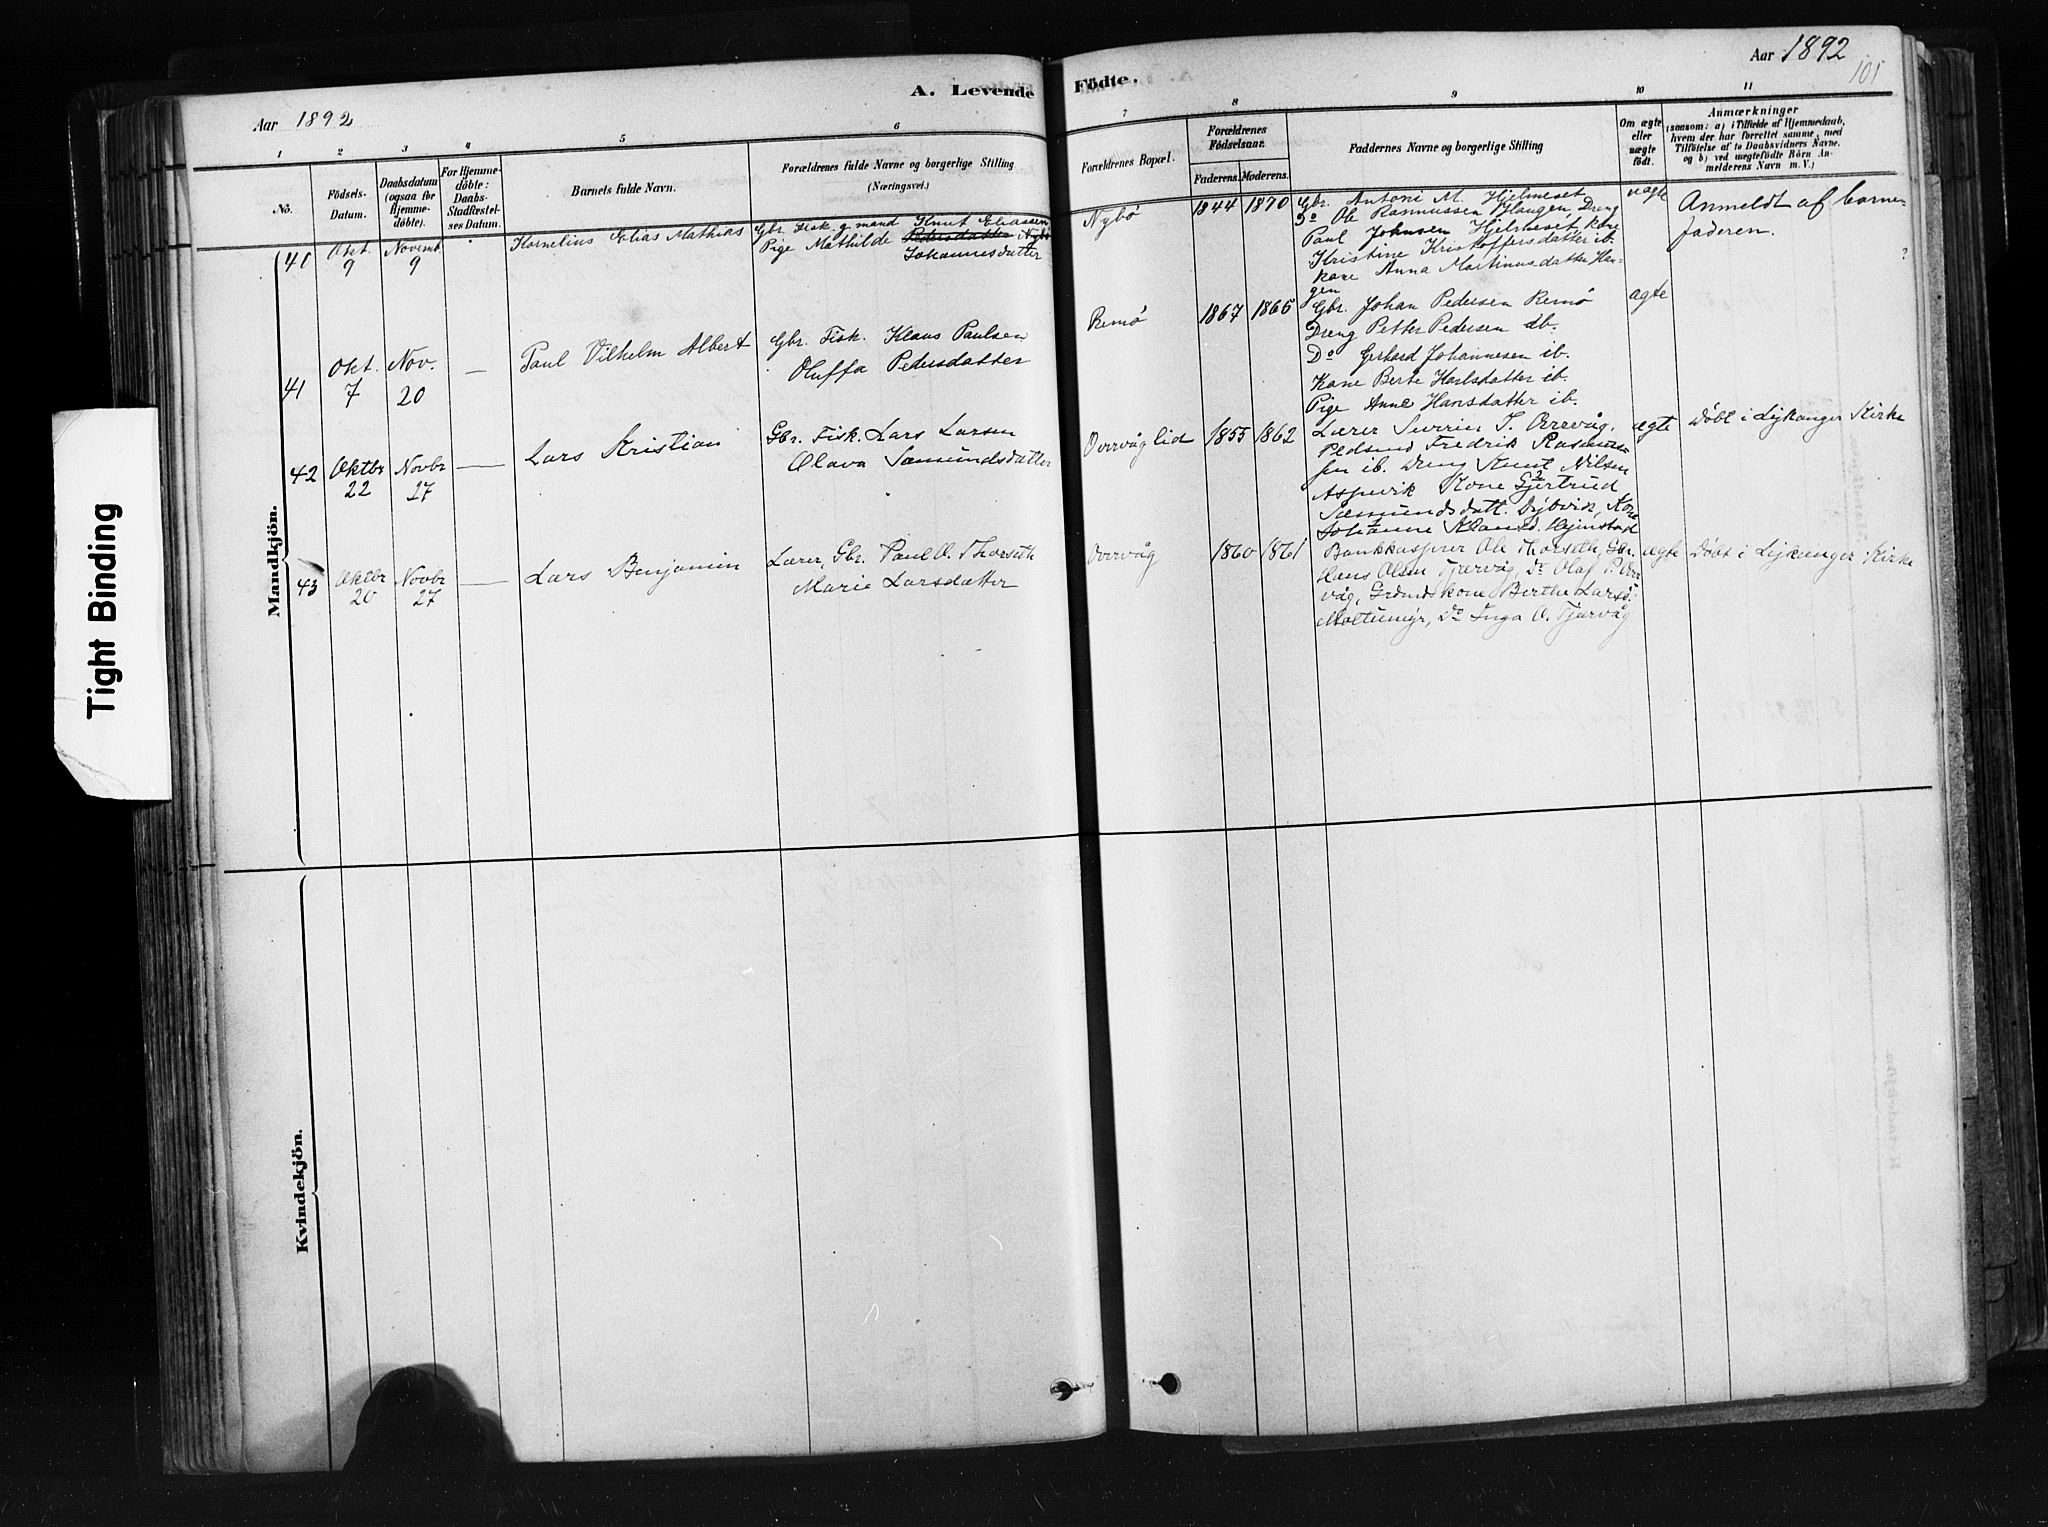 Tight Binding
A. Levende
Aar 1892
1 2 3 4 5 6
No.
Födsels-
Datum.
Daabsdatum
(ogsaa før
Hjemme-
döbte).
For Hjemme-
döbte:
Daabs-
Stadfæstel-
ses Datum.
Barnets fulde Navn.
Forældrenes fulde Navne og borgerlige Stilling
(Næringsvei.)
Mandkjön.
40
Okt.
9
Novemb.
9
Kornelius Elias Mathias
Gbr. Fisk. g. mand Knut Eliassen
Pige Mathilde Pedersdatter Nybø
Johannesdatter
41
Okt.
7
Nov.
20
—
Paul Vilhelm Albert
Gbr. Fisk. Klaus Paulsen
Oluffa Pedersdatter
42
Oktbr
22
Novbr
27
—
Lars Kristian
Gbr. Fisk. Lars Larsen
Olava Sæmundsdatter
43
Oktbr
20
Novbr
27
—
Lars Benjamin
Lærer, Gbr. Paul O. Thorseth
Marie Larsdatter
Kvindekjön.
Födte.
Aar 1892
101
7 8 9 10 11
Forældrenes Bopæl.
Forældrenes
Födselsaar.
Faderens. Moderens.
Faddernes Navne og borgerlige Stilling
Om ægte
eller
uægte
födt.
Anmærkninger
(saasom: a) i Tilfælde af Hjemmedaab,
hvem der har forrettet samme, med
Tilföielse af to Daabsvidners Navne.
og b) ved uægtefödte Börn An-
melderens Navn m. V.)
Nybø
1844 1870
Gbr. Antoni M. Hjelmeset
Do Ole Rasmussen Haugen Dreng
Paul Johnsen Hjelmeset, kone
Kristine Kristoffersdatter ib.
kone Anna Martinusdatter Hau-
gen
uægte
Anmeldt af barne-
faderen.
?
Remø
1867 1865
Gbr. Johan Pedersen Remø
Dreng Petter Pedersen ib.
Do Gerhard Johannesen ib.
Kone Berte Karlsdatter ib.
Pige Anne Hansdatter ib.
ægte
Overvåg lid
1855 1862
Lærer Severin J. Overvåg,
Pedsmd Fredrik Rasmus-
sen ib. Dreng Knut Nilsen
Aspevik Kone Gjertrud
Sæmundsdatt. Dybvik, Kone
Johanne Klausd. Hjemstad
ægte
Døbt i Lejkanger Kirke
Overvåg
1860 1861
Bankkasserer Ole Thorseth, Gbr.
Hans Olsen Tjærvåg, Do Olaf P. Over-
våg, Grdmdskone Berthe Larsd.
Moltumyr, Do Inga O. Tjærvåg
ægte
Døbt i Lejkanger Kirke